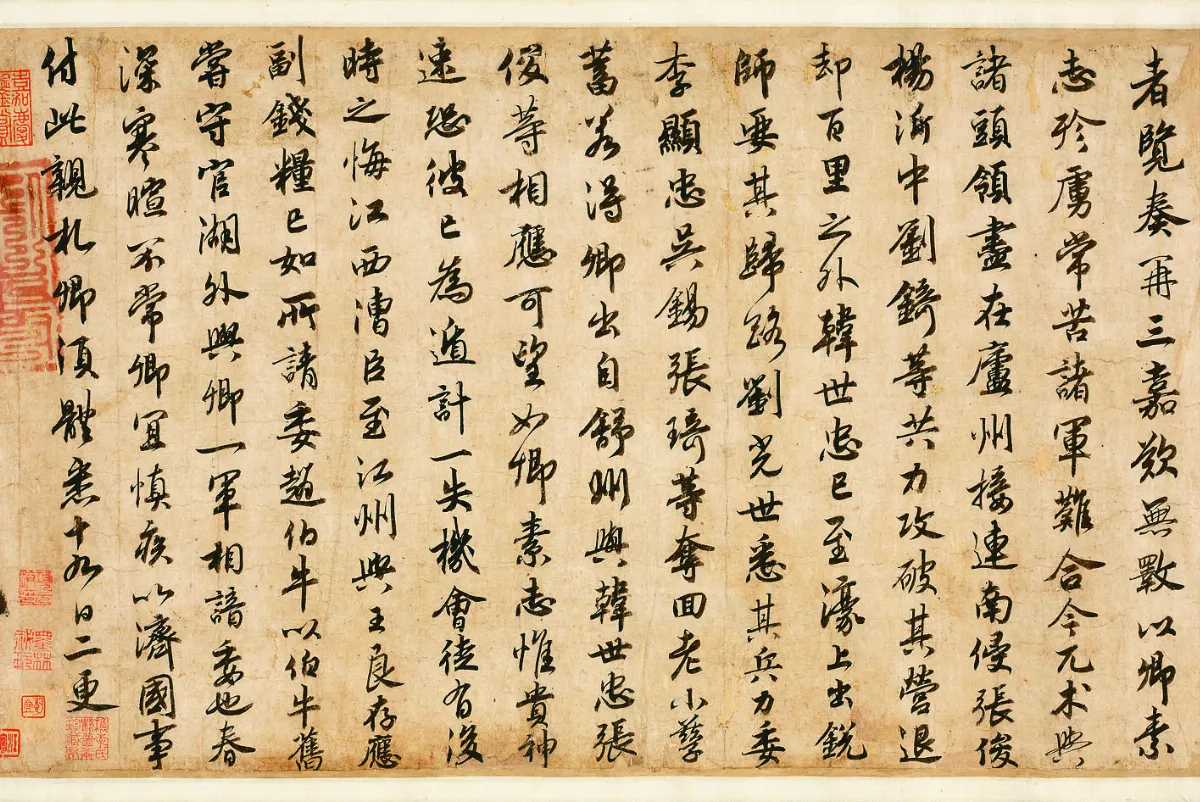 者覽奏再三嘉歎無斁以卿素
志殄虜常苦諸軍難合今兀术與
諸頭領盡在廬州接連南侵張俊
楊沂中劉錡等共力攻破其營退
却百里之外韓世忠已至濠上出銳
師要其歸路劉光世悉其兵力委
李顯忠吳錫張琦等奪回老小孳
蓄若得卿出自舒州與韓世忠張
俊等相應可望如卿素志惟貴神
速恐彼已為遁計一失機會徒有後
時之悔江西漕臣至江州與王良存應
副錢糧已如所請委趙伯牛以伯牛舊
嘗守官湖外與卿一軍相諳委也春
深寒暄不常卿宜慎疾以濟國事
付此親札卿須體悉十九日二更